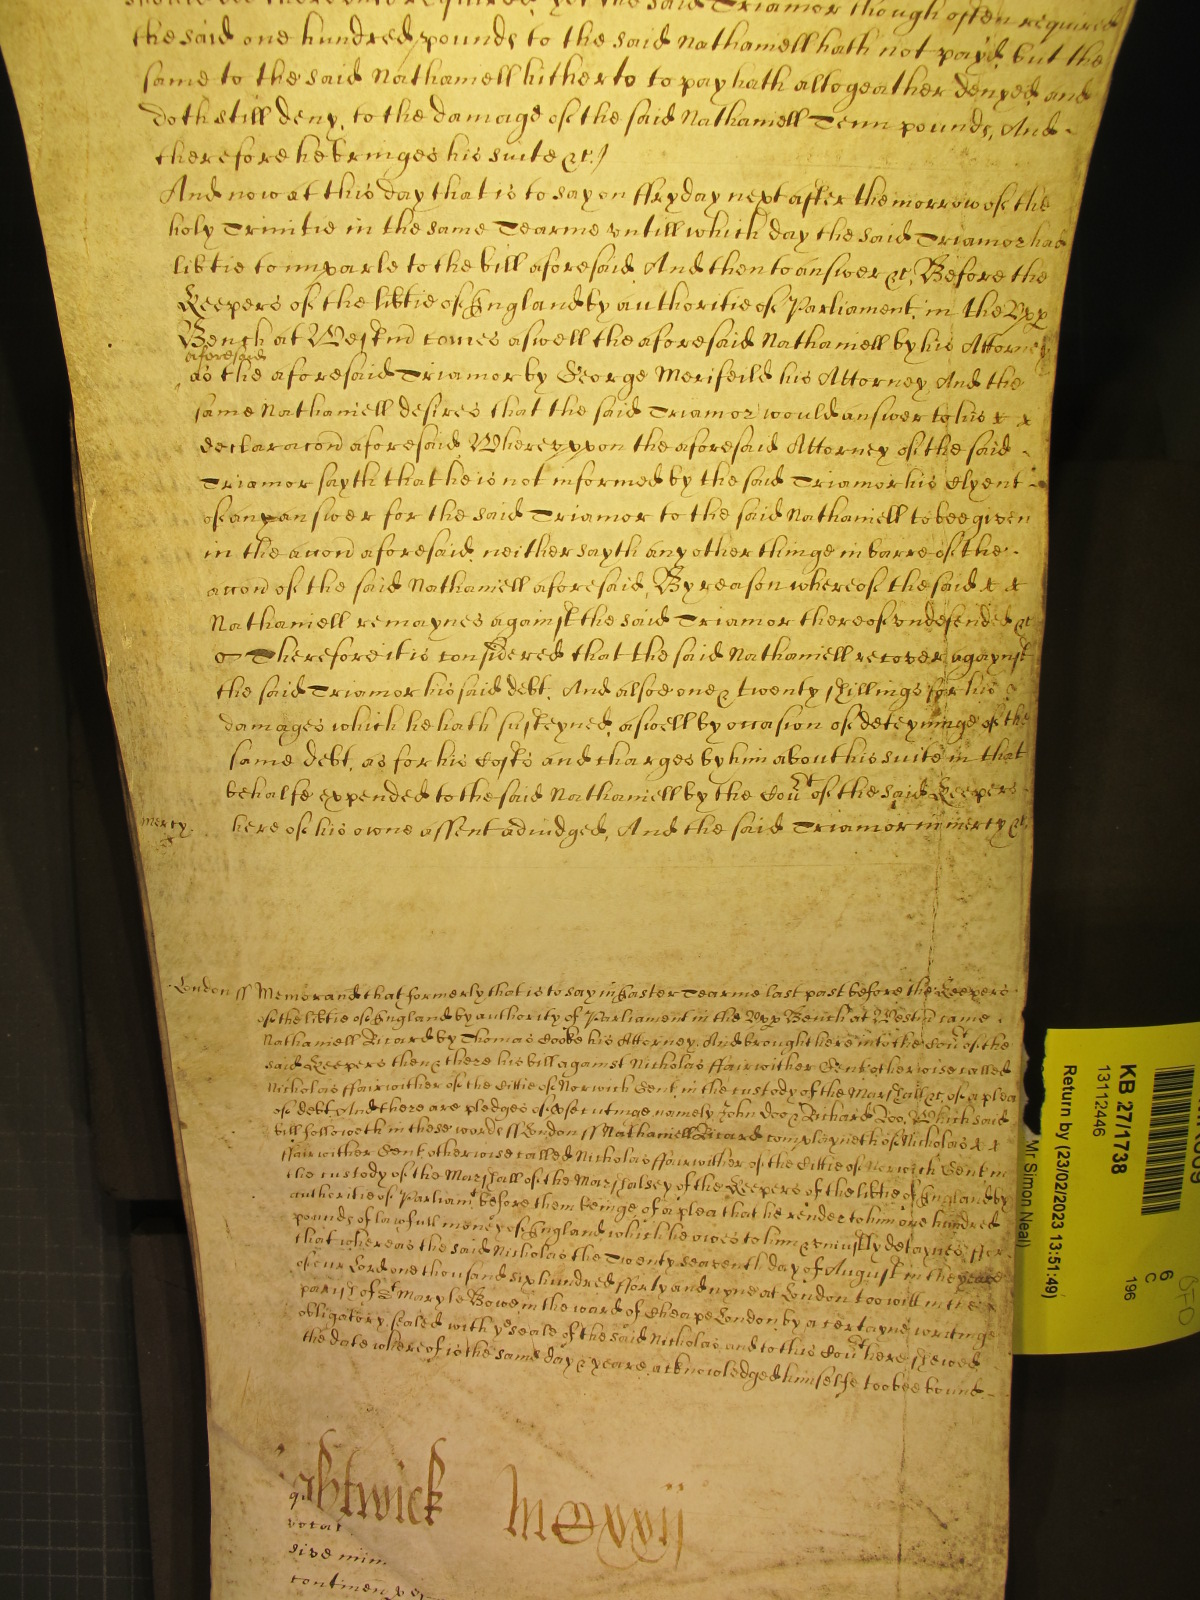 should bee thereunto required, yet the said Triamor though often required
the said one hundred pounds to the said Nathaniell hath not payd, but the
same to the said Nathaniell hitherto to pay hath altogeather denyed and
doth still deny, to the damage of the said Nathaniell Tenn pounds, And
therefore he bringes his suite &c.
And now at this day that is to say on ffryday next after the morrow of the
holy Trinitie in the same Tearme vntill which day the said Triamor had
libtie to imparle to the bill aforesaid And then to answer &c, Before the
Keepers of the libtie of England by authoritie of Parliament in the Vpp
Bench at Westm comes aswell the aforesaid Nathaniell by his Attorney
aforesaid
as the aforesaid Triamor by George Merifeild his Attorney And the
same Nathaniell desires that the said Triamor would answer to his
declaracon aforesaid, Whereyppon the aforesaid Attorney of the said
Triamor sayth that he is not informed by the said Triamor his Clyent
of any answer for the said Triamor to the said Nathaniell to bee given
in the accon aforesaid, neither sayth any other thinge in barre of the
accon of the said Nathaniell aforesaid, By reason whereof the said
Nathaniell remaynes against the said Triamor thereof vndefended &c
Therefore it is considered that the said Nathaniell recover agaynst
the said Triamor his said debt, And alsoe one & twenty shillings for his
damages which he hath susteyned, aswell by occasion of deteyninge of the
same debt, as for his Costs and charges by him about his suite in that
behalfe expended to the said Nathaniell by the Court of the said Keepers
mercy. here of his owne assent adiudged, And the said Triamor in mercy &c
London ss Memorand that formerly that is to say in Easter Tearme last past before the Keepers
of the libtie of England by authority of Parliament in the Vpp Bench at Westm came
Nathaniell Ricard by Thomas Cooke his Attorney. And brought here into the Court of the
said Keepers then & there his bill against Nicholas ffairwither Gent otherwise called
Nicholas ffairwither of the Cittie of Norwich Gent in the custody of the Marshall &c, of a plea
of debt, And there are pledges of prosecutinge namely John Doo & Richard Roo, Which said
bill followeth in these words ss London ss Nathaniell Ricard complayneth of Nicholas
ffairwither Gent otherwise called Nicholas ffairwither of the Cittie of Norwich Gent in
the custody of the Marshall of the Marshalsey of the Keepers of the libtie of England by
authoritie of Parliamt before them beinge, of a plea that he render to him one hundred
pounds of lawfull money of England which he owes to him & vniustly detaynes, ffor
that whereas the said Nicholas the Twenty seaventh day of August in the yeare
of our Lord one thousand six hundred fforty and nyne at London too witt in the
parish of St Mary le Bowe, in the ward of Cheape London by a certayne writinge
obligatory, sealed with ye seale of the said Nicholas, and to this Court here shewed
the date whereof is the same day & yeare, acknowledged himselfe too bee bound
KB 27/1738
13112446
Return by (23/02/2023 13:51:49)
Mr Simon Neal)
6
C
196